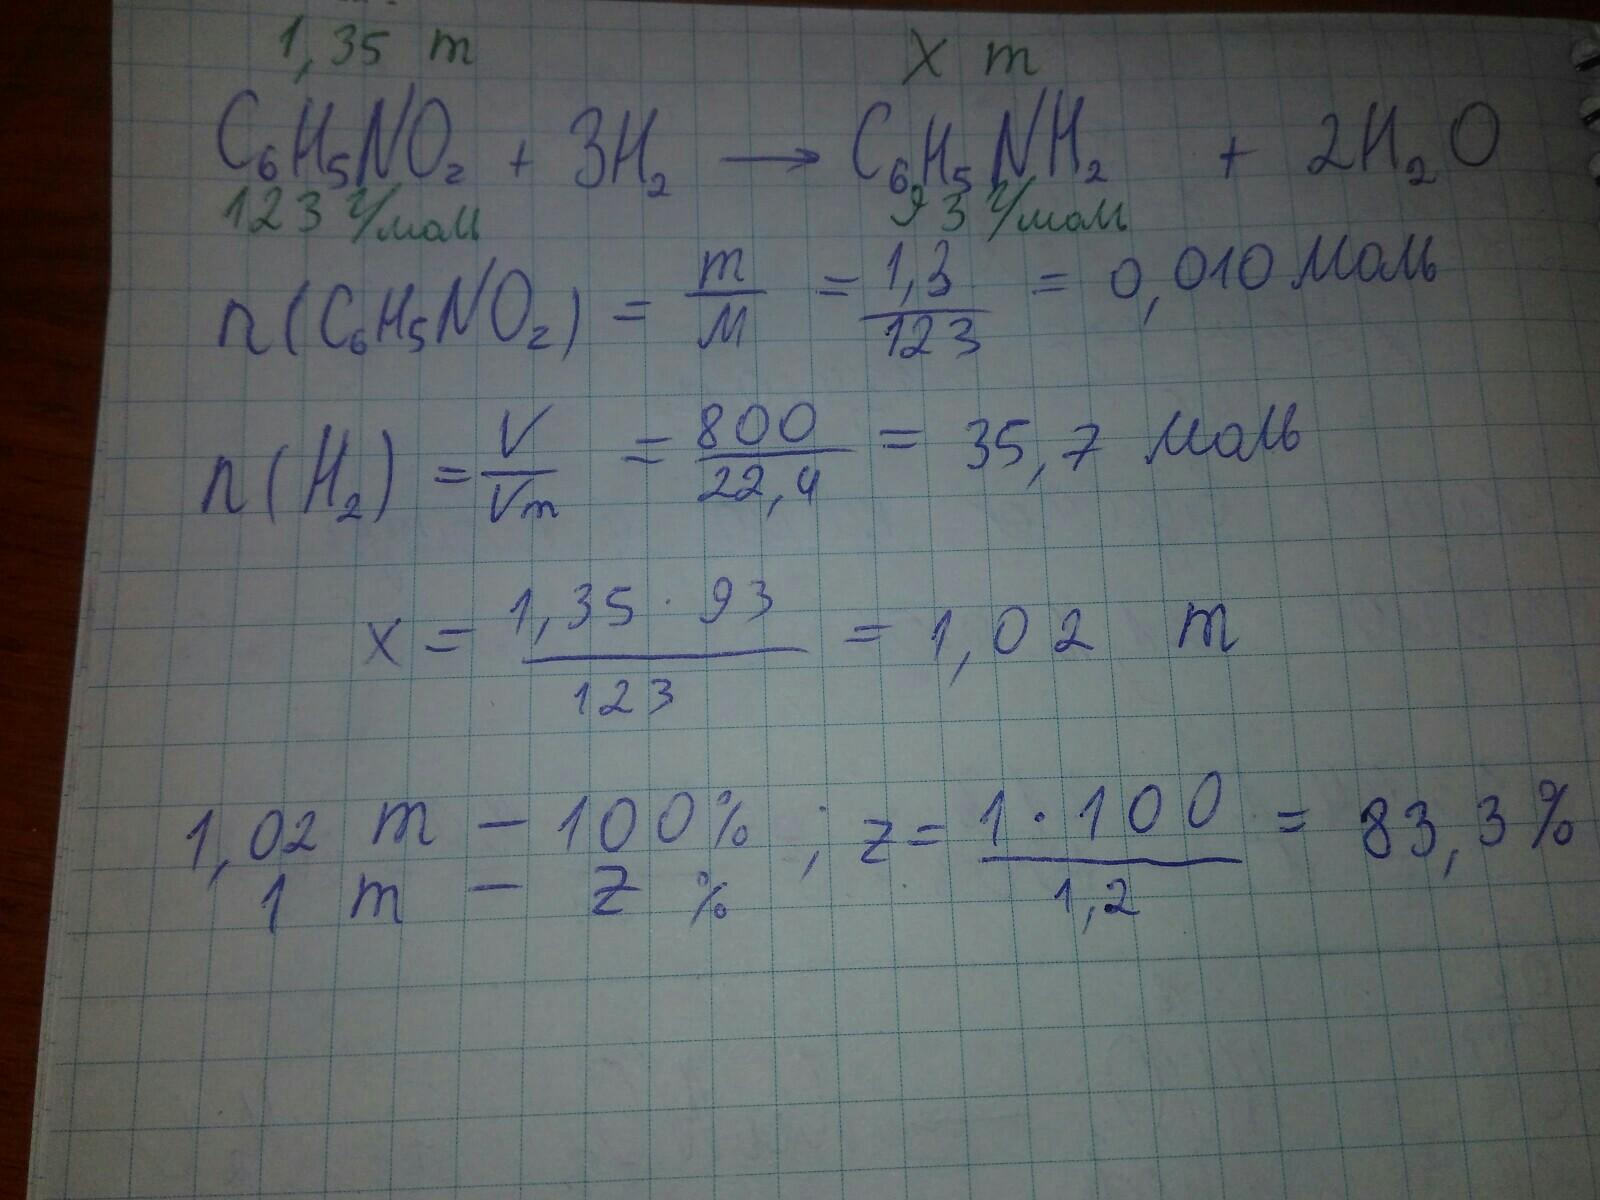 1,35 т X т
C₆H₅NO₂ + 3H₂ → C₆H₅NH₂ + 2H₂O
123 г/моль 93 г/моль
n(C₆H₅NO₂) = m/M = 1,3/123 = 0,010 моль
n(H₂) = V/Vm = 800/22,4 = 35,7 моль
x = 1,35 · 93/123 = 1,02 т
1,02 т – 100% ; z = 1 · 100/1,2 = 83,3%
1 т – z %